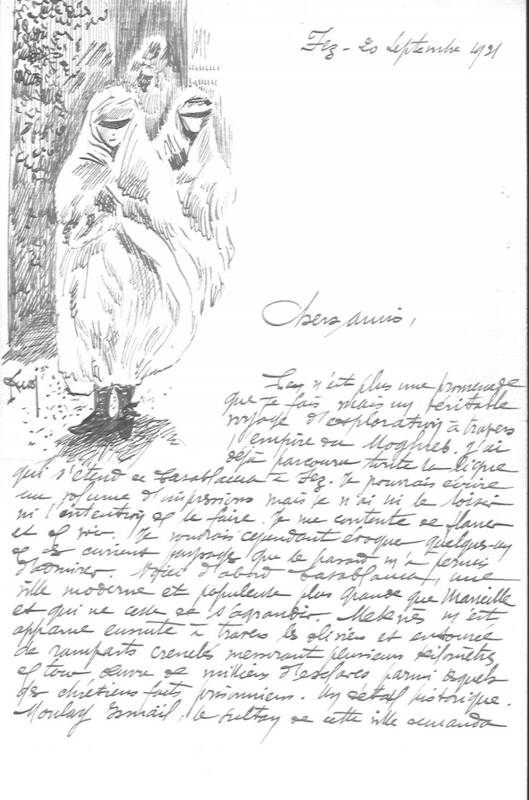 Fez - 20 Septembre 1931
Chers amis,
Ce n'est plus une promenade
que je fais mais un véritable
voyage d'exploration à travers
l'empire du Moghreb. J'ai
déjà parcouru toute la ligne
qui s'étend de Casablanca à Fez. Je pourrais écrire
un volume d'impressions mais je n'ai ni le loisir
ni l'intention de le faire. Je me contente de flaner
et de voir. Je voudrais cependant évoquer quelques-uns
de ces curieux paysages que le m'a permis
d'admirer. Voici d'abord Casablanca, une
ville moderne et populeuse plus grande que Marseille
et qui ne cesse de s'agrandir. Meknès m'est
apparue ensuite à travers les oliviers et entourée
de remparts crenelés mesurant plusieurs kilomètres
et tous œuvre de milliers d'esclaves parmi lesquels
des chrétiens faits prisonniers. Un détail historique.
Moulay Ismaïl, le sultan de cette ville demanda